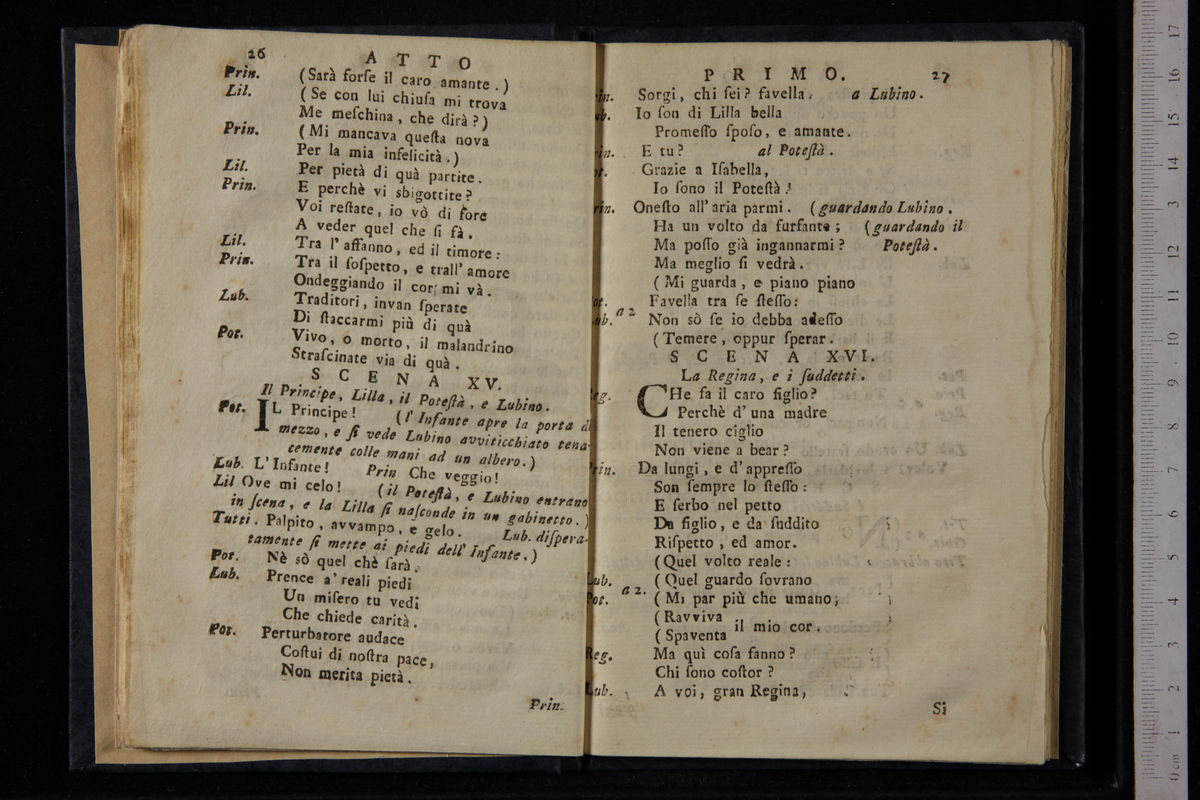 26
A T T O
Prin. (Sarà forſe il caro amante.)
Lil. (Se con lui chiuſa mi trova
Me meſchina, che dirà?)
Prin. (Mi mancava queſta nova
Per la mia infelicità.)
Lil. Per pietà di quà partite.
Prin. E perchè vi sbigottite?
Voi reſtate, io vò di fore
A veder quel che ſi fà.
Lil. Tra l'affanno, ed il timore:
Prin. Tra il ſoſpetto, e trall'amore
Ondeggiando il cor mi và.
Lub. Traditori, invan ſperate
Di ſtaccarmi più di quà
Pot. Vivo, o morto, il malandrino
Straſcinate via di quà.
S C E N A XV.
Il Principe, Lilla, il Poteſtà, e Lubino.
Pot. IL Principe! (l'Infante apre la porta di
mezzo, e ſi vede Lubino avviticchiato tena-
cemente colle mani ad un albero.)
Lub. L'Infante! Prin Che veggio!
Lil Ove mi celo! (il Poteſtà, e Lubino entrano
in ſcena, e la Lilla ſi naſconde in un gabinetto.)
Tutti. Palpito, avvampo, e gelo. Lub. diſpera-
tamente ſi mette ai piedi dell'Infante.)
Pot. Nè sò quel chè ſarà.
Lub. Prence a'reali piedi
Un miſero tu vedi
Che chiede carità.
Pot. Perturbatore audace
Coſtui di noſtra pace,
Non merita pietà.
Prin.
P R I M O. 27
in. Sorgi, chi ſei? favella. a Lubino.
ub. Io ſon di Lilla bella
Promeſſo ſpoſo, e amante.
in. E tu? al Poteſtà.
ot. Grazie a Iſabella,
Io ſono il Poteſtà.
rin. Oneſto all'aria parmi. (guardando Lubino.
Ha un volto da furfante; (guardando il
Ma poſſo già ingannarmi? Poteſtà.
Ma meglio ſi vedrà.
( Mi guarda, e piano piano
ot. Favella tra ſe ſteſſo:
ub. a 2 Non sò ſe io debba adeſſo
(Temere, oppur ſperar.
S C E N A XVI.
La Regina, e i ſuddetti.
Reg. CHe fa il caro figlio?
Perchè d'una madre
Il tenero ciglio
Non viene a bear?
Prin. Da lungi, e d'appreſſo
Son ſempre lo ſteſſo:
E ſerbo nel petto
Da figlio, e da ſuddito
Riſpetto, ed amor.
(Quel volto reale:
Lub. (Quel guardo ſovrano
Pot. a 2. (Mi par più che umano;
(Ravviva
(Spaventa il mio cor.
Reg. Ma quì coſa fanno?
Chi ſono coſtor?
Lub. A voi, gran Regina,
Si